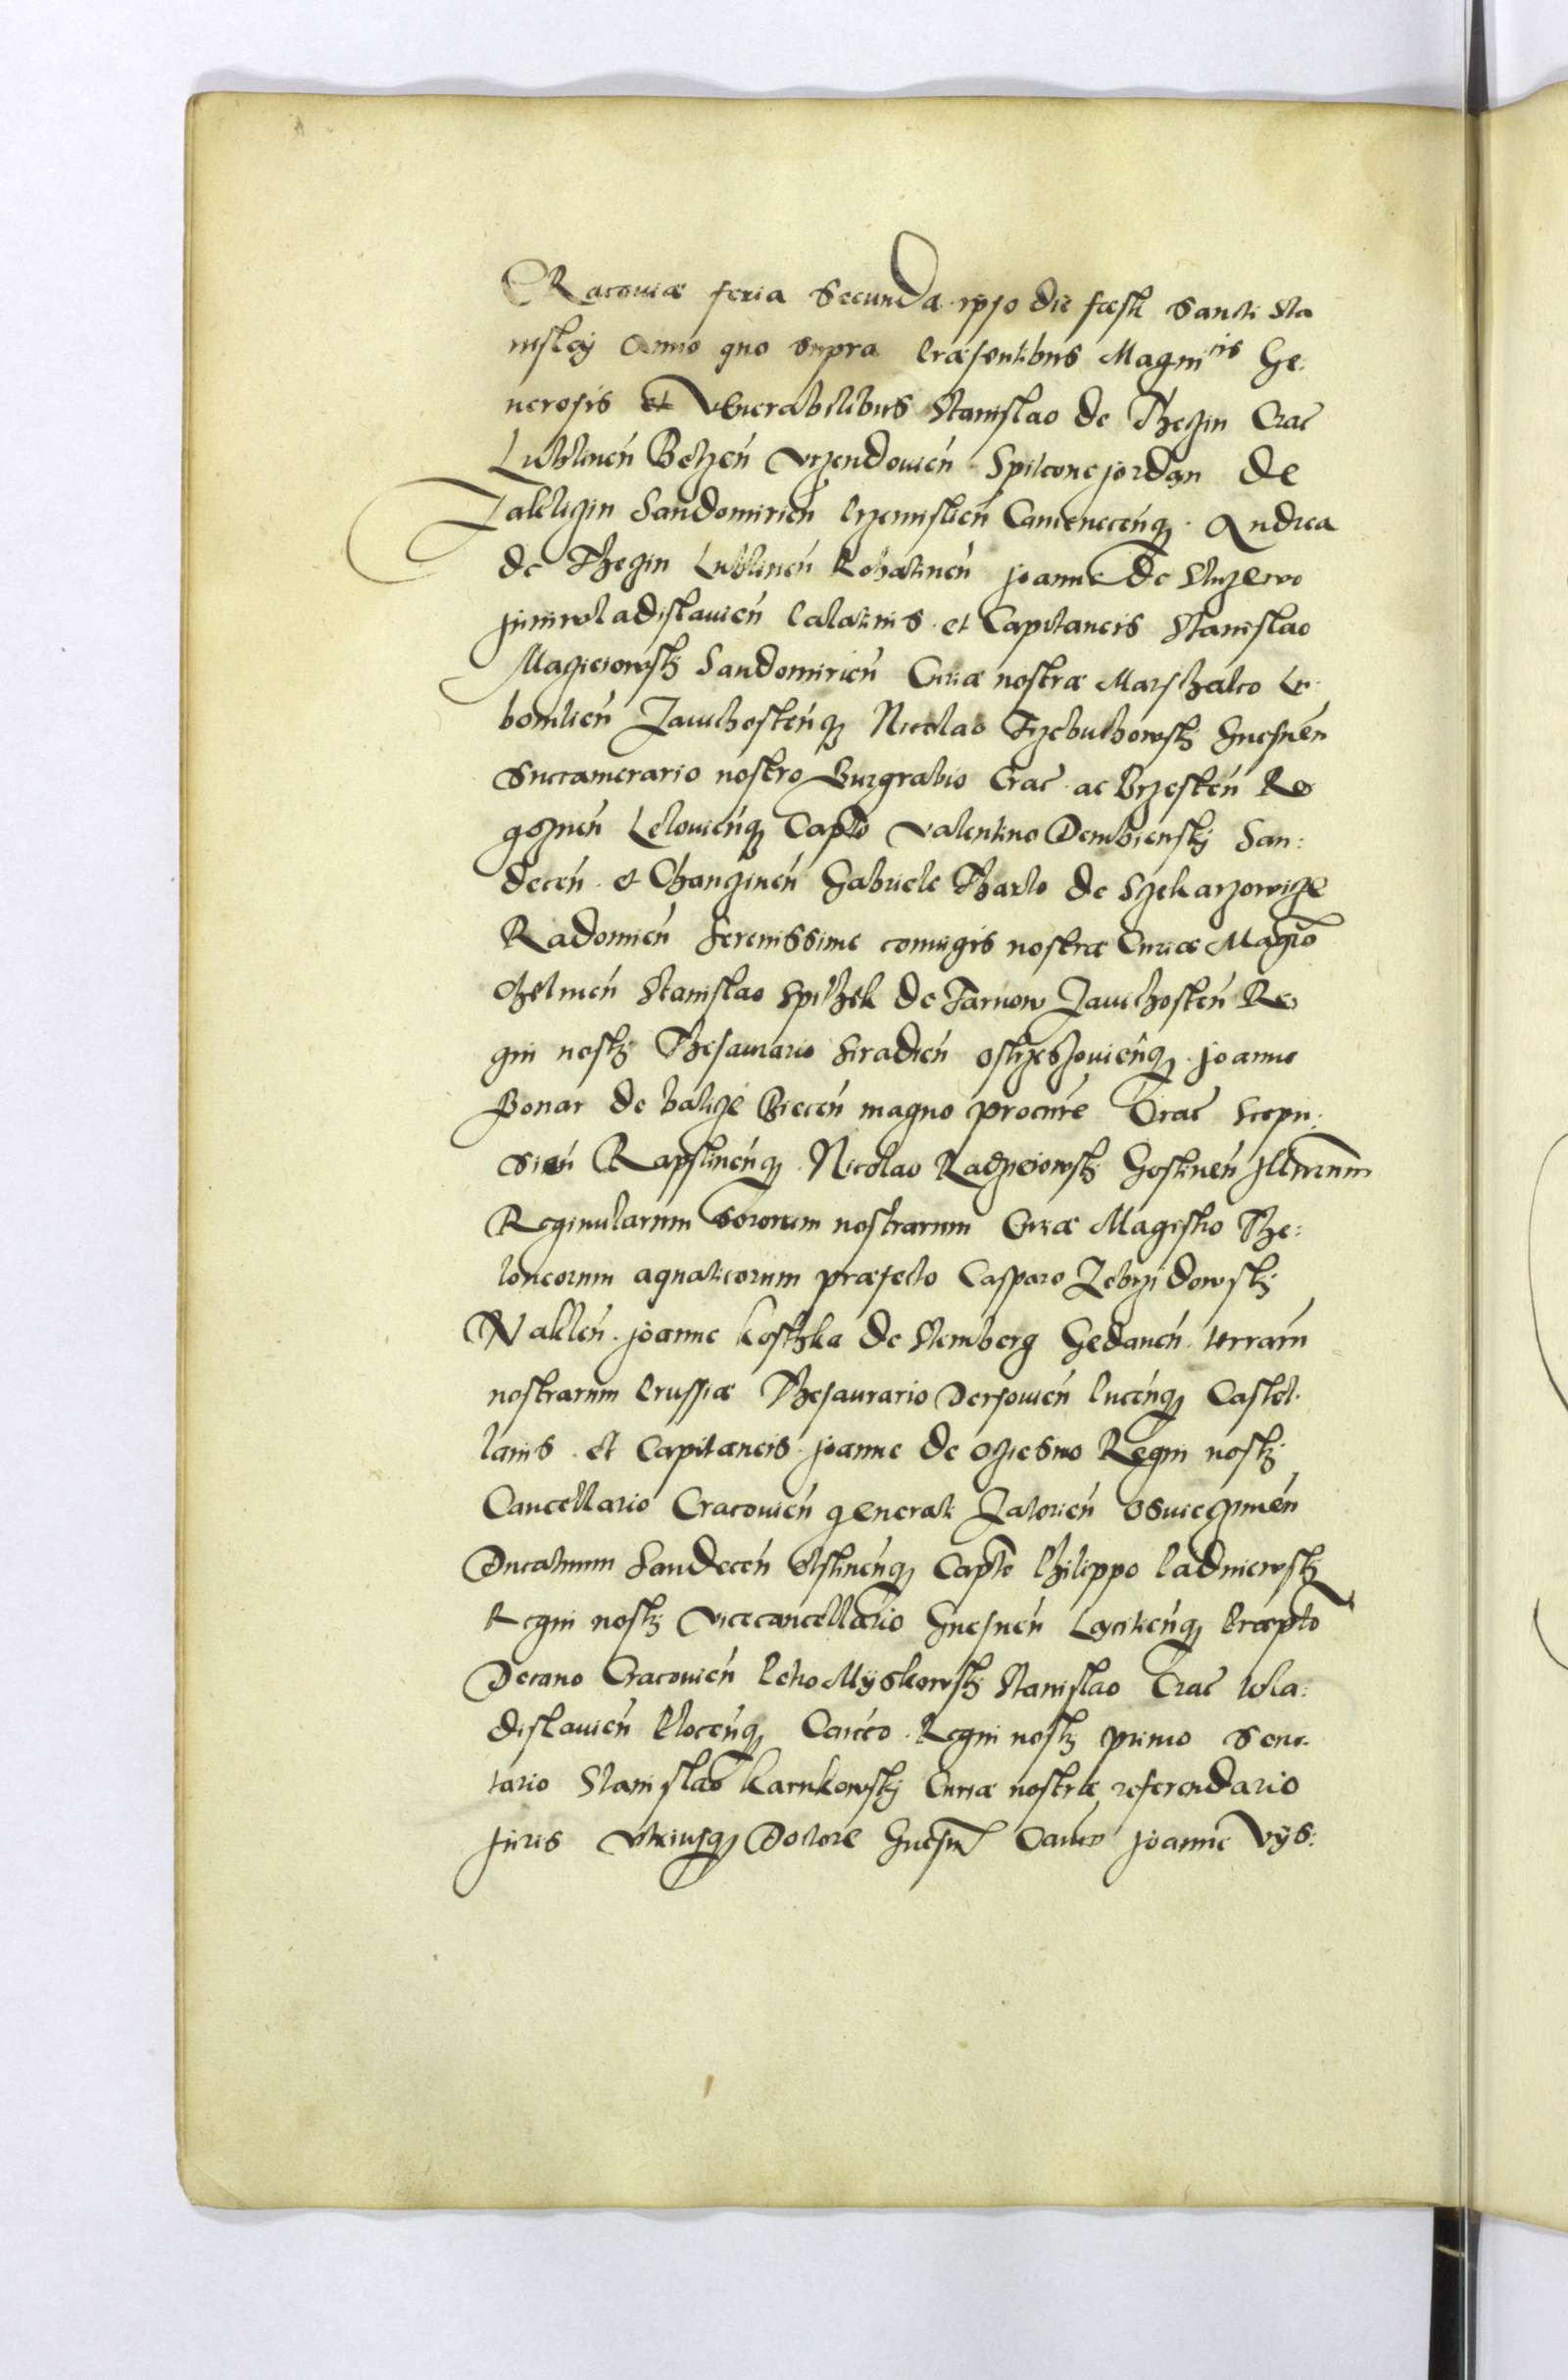 CRacoviæ feria Secunda ipso die fæsti Sancti Sta
nislaij Anno quo supra Præsentibus Magnicis Ge:
nerosis et Venerabilibus Stanislao de Thęczin Crac
Lublinen̄ Belzen̄ Vrzendovien̄ Spitcone Jordan de
Zakliczin Sandomirien̄ Przemislien̄ Camenecen̄q₃ Andrea
de Thęczin Lublinen̄ Rohatinen̄ Joanne de Sluzewo
Juniwladislavien̄ Palatinis et Capitaneis Stanislao
Maczieiowsk₃ Sandomirien̄ Curiæ nostræ Marschalco Lu
bomlien̄ Zavichosten̄q₃ Nicolao Trzebuchowsk₃ Gnesnen̄
Succamerario nostro Burgrabio Crac ac Brzesten̄ Ro
goznen̄ Lelovien̄q₃ Capto Valentino Dembienskj San:
decen̄ et Chanczinen̄ Gabriele Tharlo de Szekarzowicze
Radomien̄ Serenissime coniugis nostræ Curiæ Magro
Chelmen̄ Stanislao Spithek de Tarnow Zavichosten̄ Re
gni nostri Thesaurario Siradien̄ Ostrzeshovien̄q₃ Joanne
Bonar de balicze Biecen̄ magno procure Crac Scepu:
sien̄ Rapstinen̄q₃ Nicolao Radzieiowsk₃ Gostinen̄ Illmarum
Reginularum Sororum nostrarum Curiæ Magistro The:
loneorum aquaticorum præfecto Casparo Zebrzidowsk₃
Naklen̄ Joanne Kosthka de Stemberg Gedanen̄ terrarū
nostrarum Prussiæ Thesaurario Dersovien̄ Pucen̄q₃ Castel
lanis et Capitaneis Joanne de Oczieshno Regni nostri
Cancellario Cracovien̄ generali Zatorien̄ Osviecimen̄
Ducatuum Sandecen̄ Olstinen̄q₃ Capto Philippo Padniewsk₃
Regni nostri Vicecancellario Gnesnen̄ Lancicien̄q₃ Præpto
Decano Cracovien̄ Petro Mÿskowsk₃ Stanislao Crac Wla:
dislavien̄ Plocen̄q₃ Canco Regni nostri primo Secre
tario Stanislao Karnkowskj Curiæ nostræ referendario
Juris Vtriusq₃ Doctore Gnesn̄ Canco Joanne Vÿs: